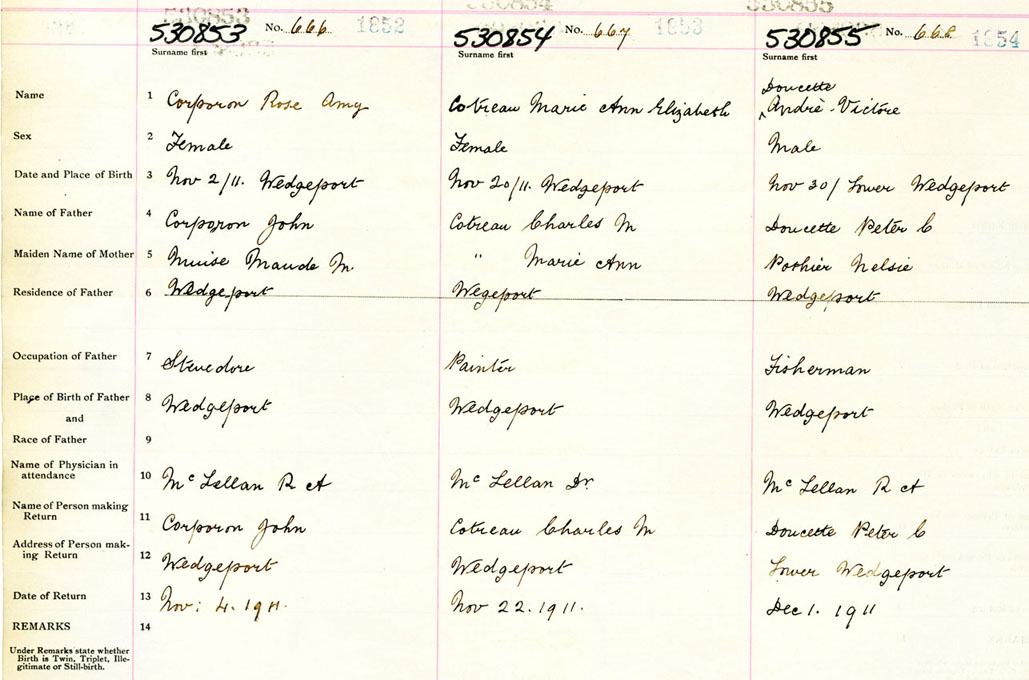 530853 No. 666 1852 530854 No. 667 1853 530855 No. 668 1854
Surname first Surname first Surname first
Doucette
Name 1 Corporon Rose Amy Cotreau Marie Ann Elizabeth ^ Andrè-Victore
Sex 2 Female Female Male
Date and Place of Birth 3 Nov 2/11. Wedgeport Nov 20/11. Wedgeport Nov 30/ Lower Wedgeport
Name of Father 4 Corporon John Cotreau Charles M Doucette Peter C
Maiden Name of Mother 5 Muise Maude M. " Marie Ann Pothier Nelsie
Residence of Father 6 Wedgeport Wegeport Wedgeport
Occupation of Father 7 Stevedore Painter Fisherman
Place of Birth of Father 8 Wedgeport Wedgeport Wedgeport
and
Race of Father 9
Name of Physician in
attendance 10 McLellan R A McLellan Dr. McLellan R A
Name of Person making
Return 11 Corporon John Cotreau Charles M Doucette Peter C
Address of Person mak-
ing Return 12 Wedgeport Wedgeport Lower Wedgeport
Date of Return 13 Nov: 4. 1911. Nov 22. 1911. Dec 1. 1911
REMARKS 14
Under Remarks state whether
Birth is Twin, Triplet, Ille-
gitimate or Still-birth.